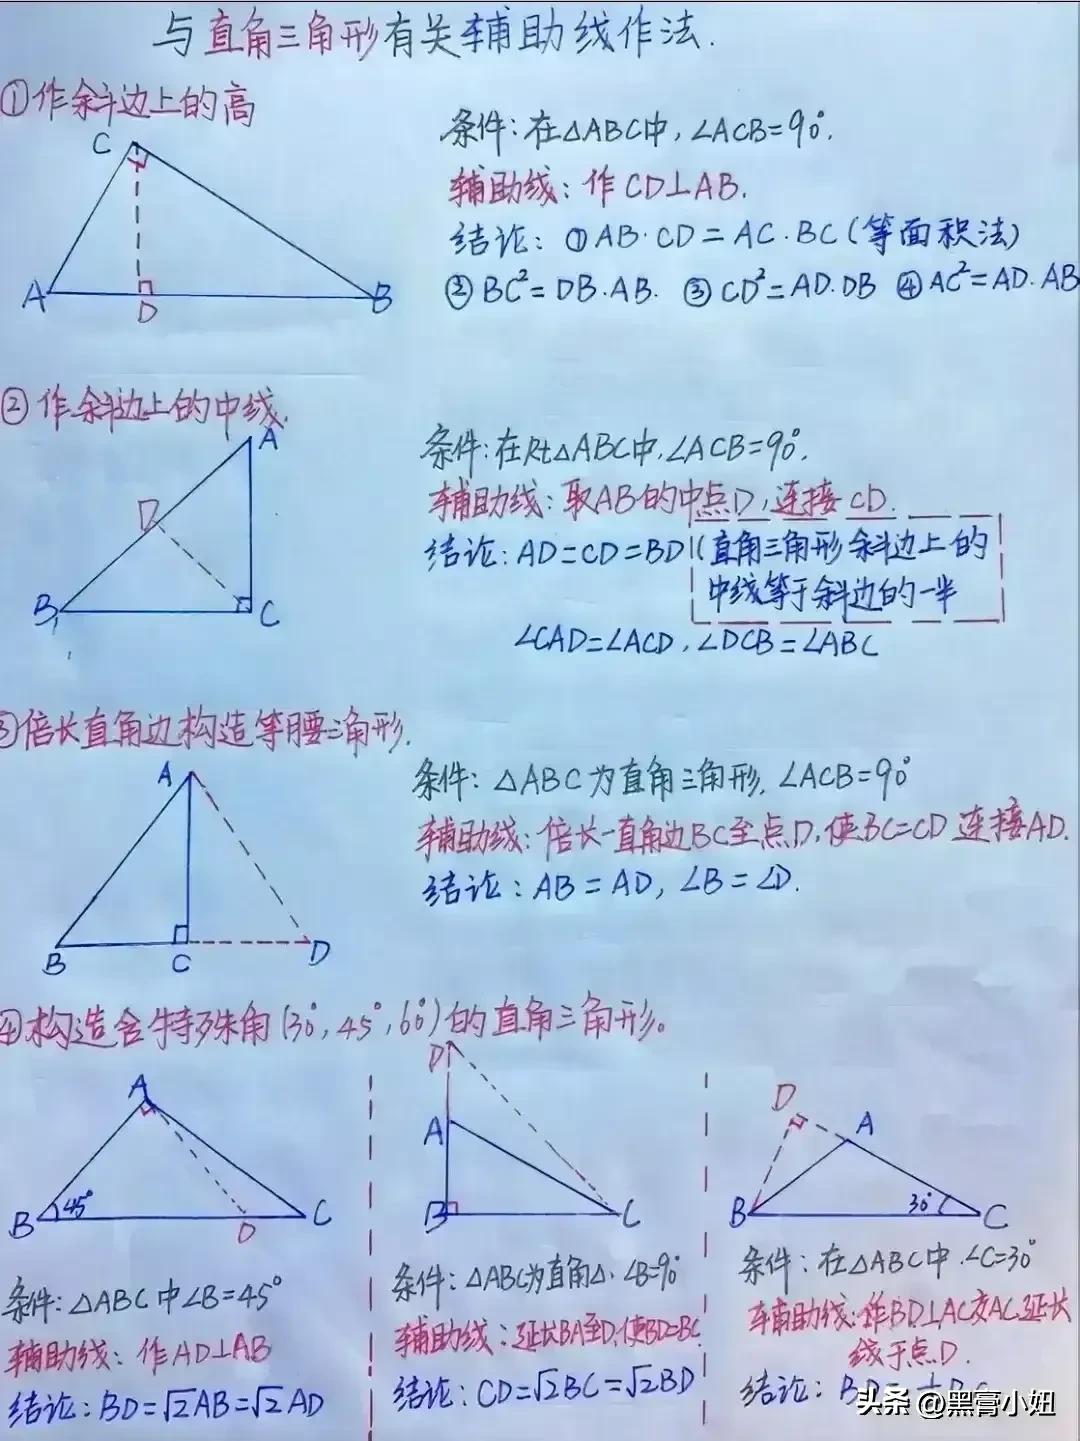 与直角三角形有关辅助线作法.
①作斜边上的高
C
A
D
B
条件:在△ABC中,∠ACB=90°.
辅助线:作CD⊥AB.
结论:①AB·CD=AC·BC(等面积法)
②BC²=DB·AB. ③CD²=AD·DB ④AC²=AD·AB
②作斜边上的中线.
A
D
B
C
条件:在Rt△ABC中,∠ACB=90°.
辅助线:取AB的中点D,连接CD.
结论:AD=CD=BD(直角三角形斜边上的
中线等于斜边的一半
∠CAD=∠ACD,∠DCB=∠ABC
③倍长直角边构造等腰三角形.
A
B
C
D
条件:△ABC为直角三角形,∠ACB=90°
辅助线:倍长一直角边BC至点D,使BC=CD连接AD.
结论:AB=AD,∠B=∠D.
④构造含特殊角(30°,45°,60°)的直角三角形。
A
B
45°
D
C
条件:△ABC中∠B=45°
辅助线:作AD⊥AB
结论:BD=√2AB=√2AD
D
A
B
C
条件:△ABC为直角△.∠B=90°
辅助线:延长BA至D,使BD=BC
结论:CD=√2BC=√2BD
D
A
B
30°
C
条件:在△ABC中.∠C=30°
辅助线:作BD⊥AC交AC延长
线于点D.
结论:
头条 @黑膏小妞